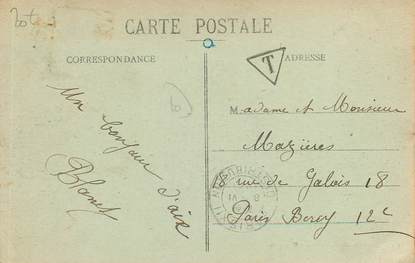 CARTE POSTALE
CORRESPONDANCE
ADRESSE
T
Un bonjour d'aix
Blanc
Madame et Monsieur
Mazières
18 rue de Galois 18
Paris Bercy 12e